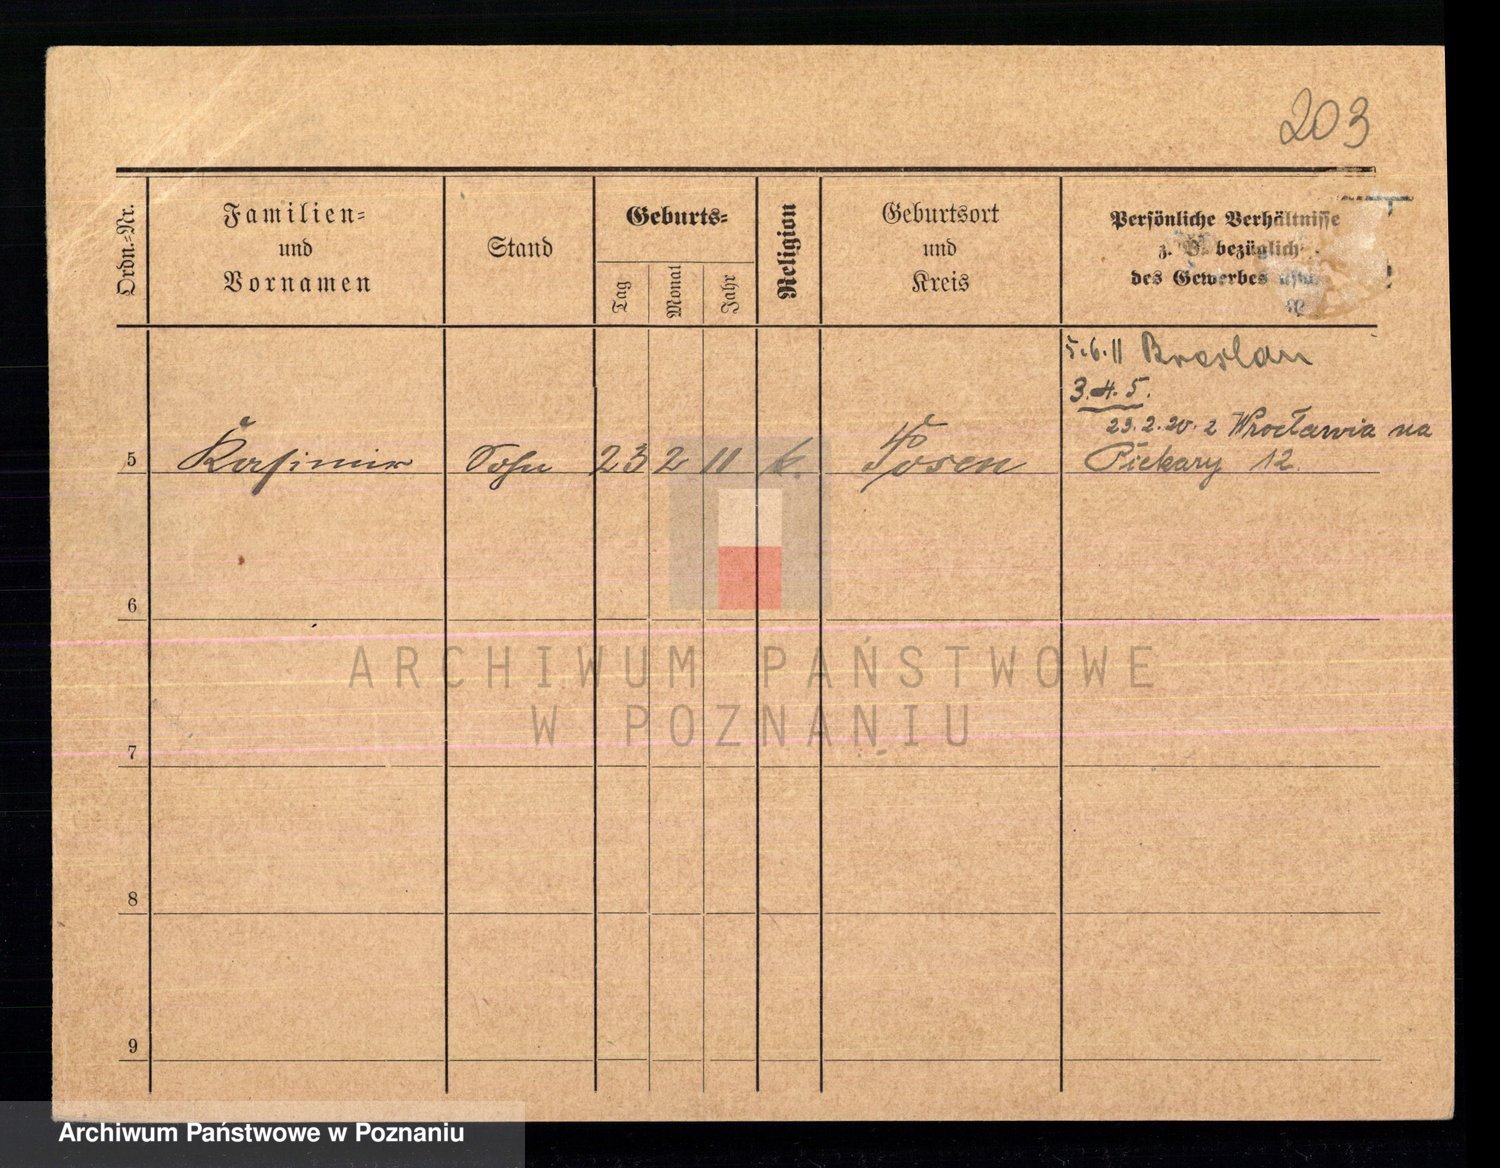 203
Ordn.-Nr.
Familien-
und
Vornamen
Stand
Geburts-
Tag
Monat
Jahr
Religion
Geburtsort
und
Kreis
Persönliche Verhältnisse
z. B. bezüglich
des Gewerbes usw.
5.6.11 Breslau
3.4.5.
23.2.20. z Wrocławia na
Piekary 12.
5 Kasimir Sohn 23 2 11 k. Posen
6
7
8
9
ARCHIWUM PAŃSTWOWE
W POZNANIU
Archiwum Państwowe w Poznaniu